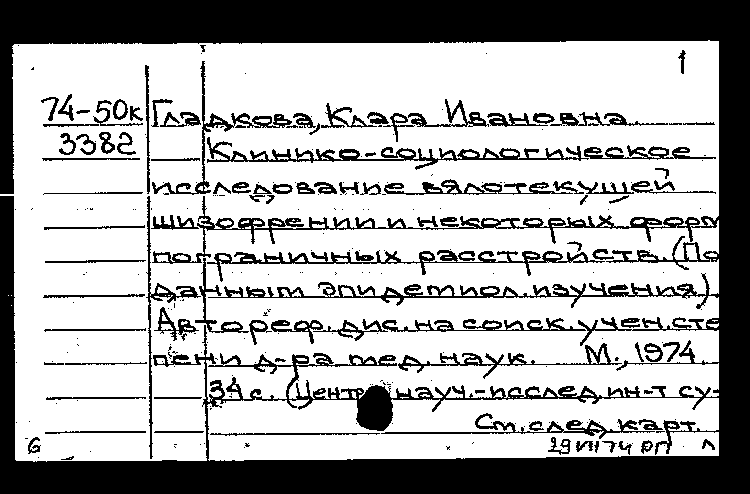 1
74-50к Гладкова, Клара Ивановна
3382 Клинико-социологическое
исследование вялотекущей
шизофрении и некоторых форм
пограничных расстройств. (По
данным эпидемиол. изучения).
Автореф. дис. на соиск. учен. сте
пени д-ра мед. наук. М., 1974.
34 с. (Центр науч.-исслед. ин-т су-
См. след. карт.
6 29 VII 74